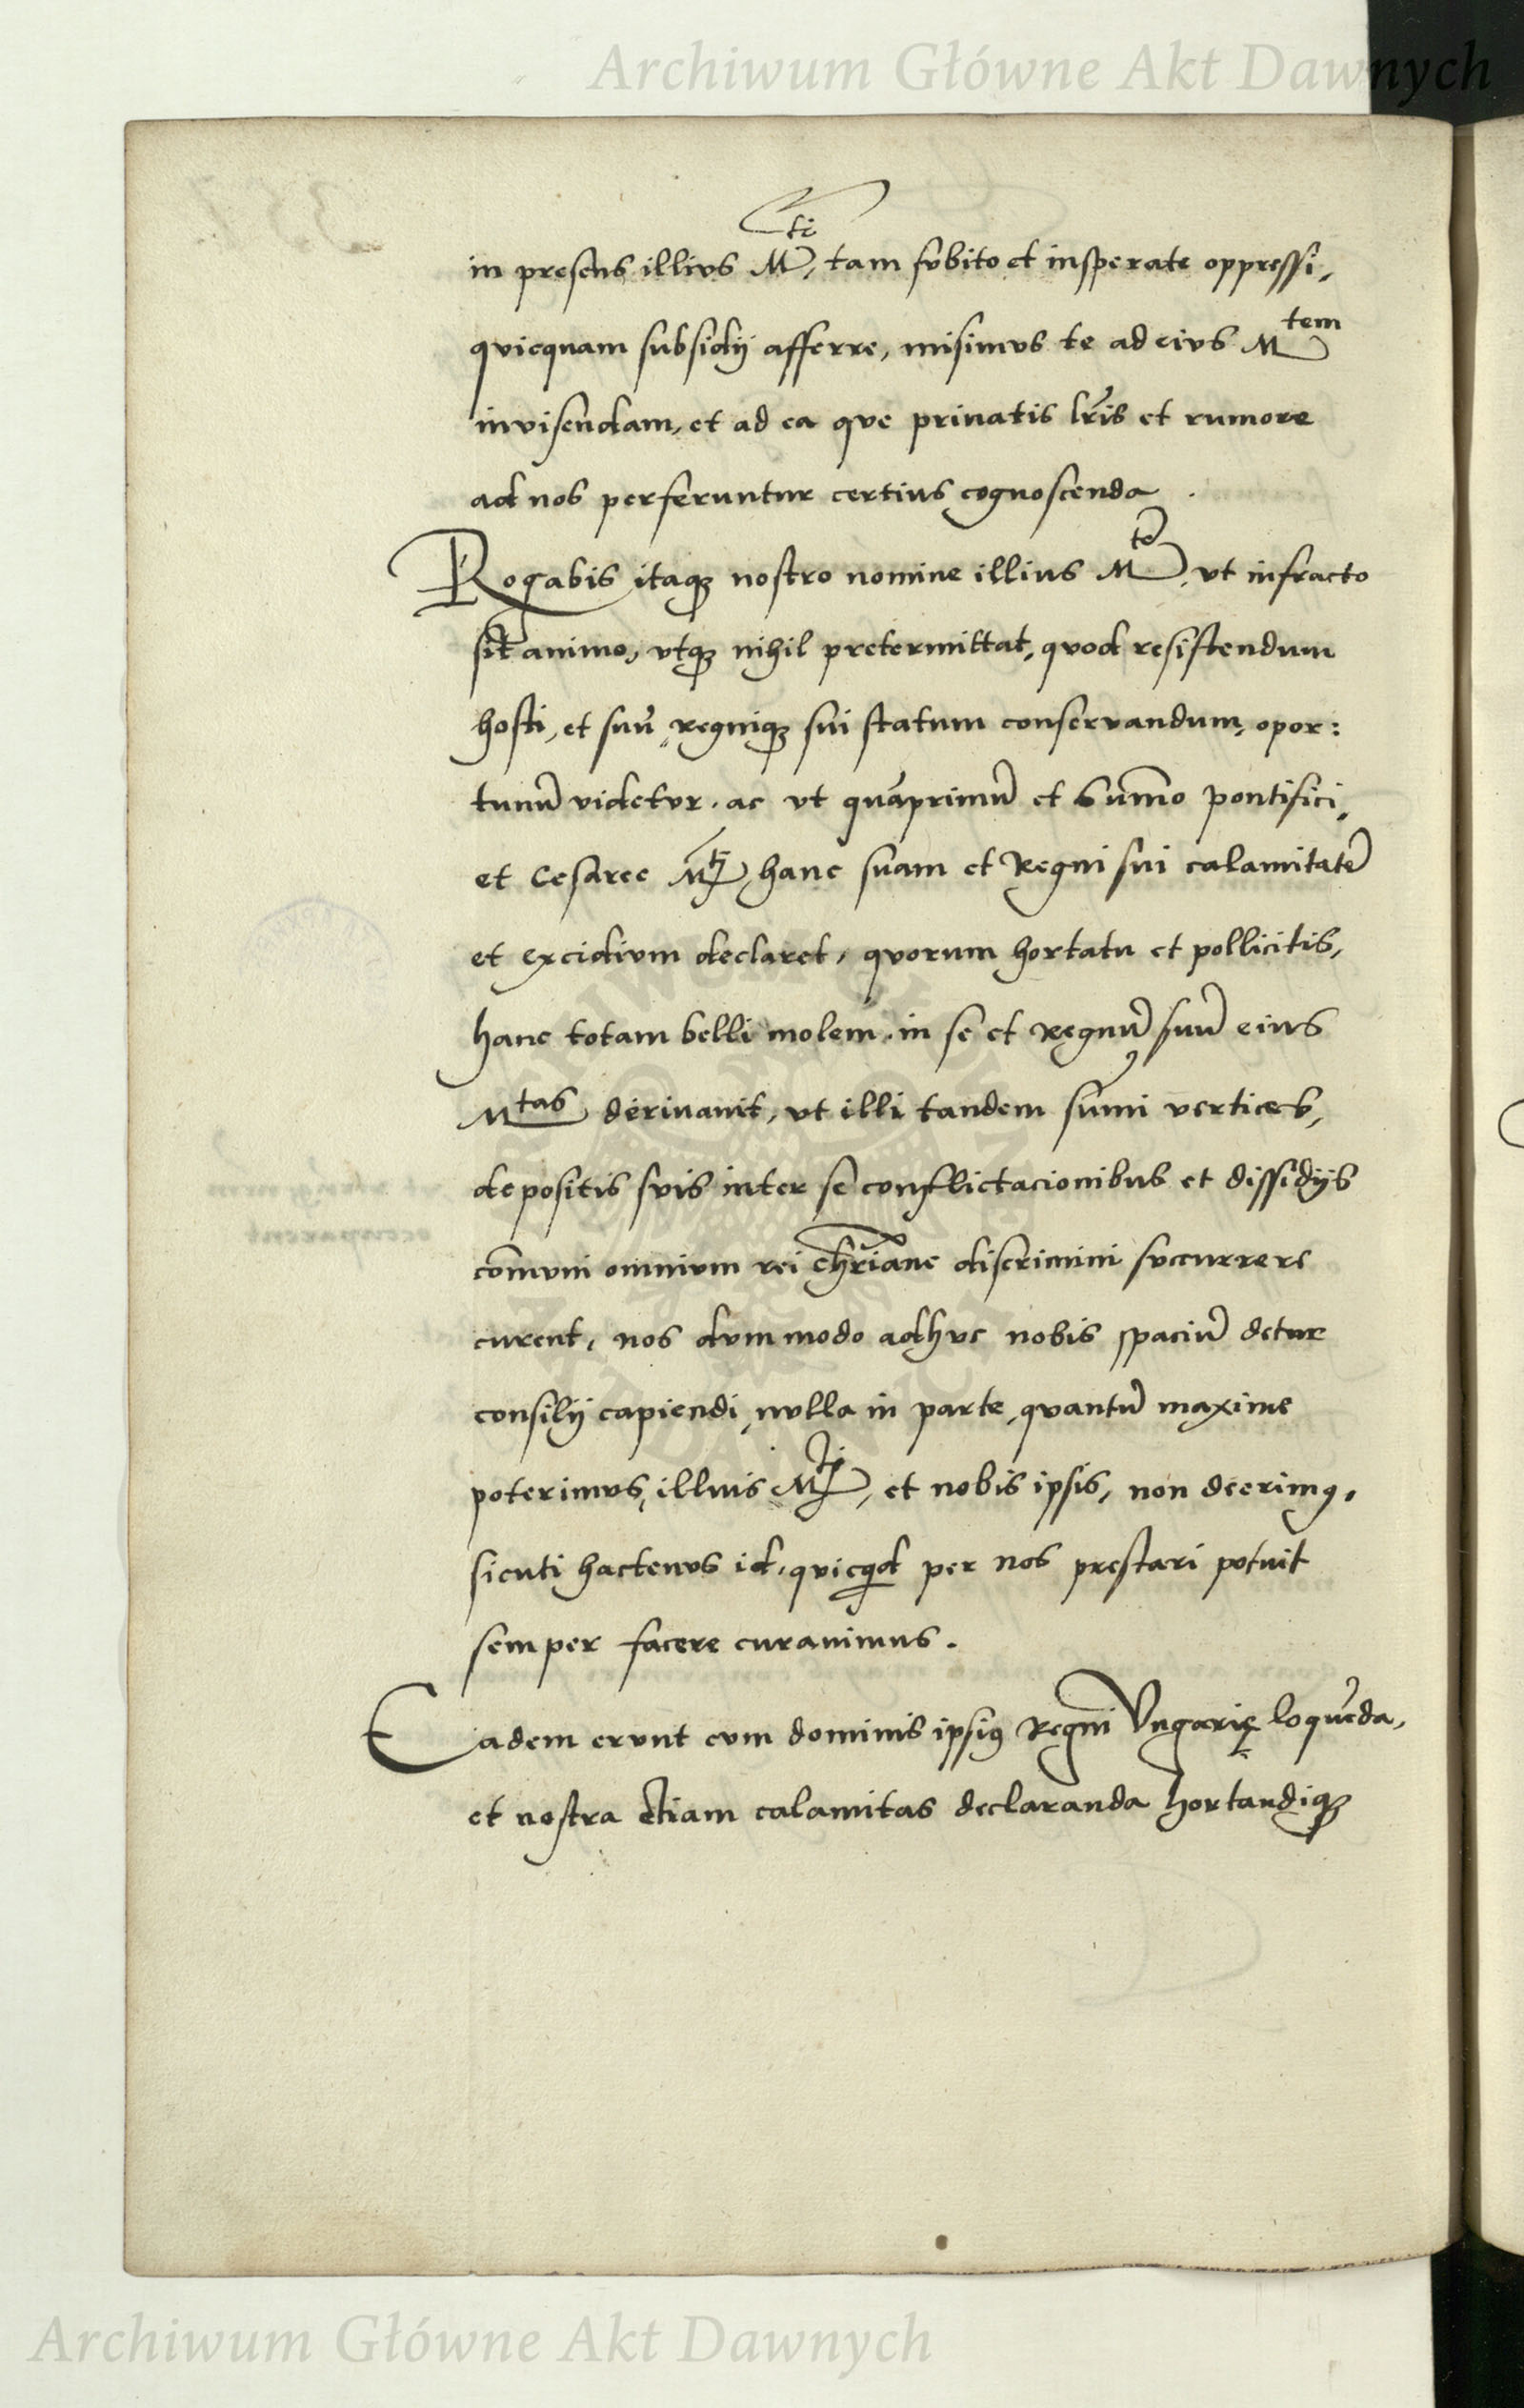 Archiwum Główne Akt Dawnych
in presens illius M^ti, tam subito et insperate oppressi,
quicquam subsidij afferre, misimus te ad eius M^tem
invisendam, et ad ea que privatis lr̃is et rumore
ad nos perferuntur certius cognoscenda .
Rogabis itaqꝫ nostro nomine illius M^tẽ, ut infracto
sit animo, utqꝫ nihil pretermittat, quod resistendum
hosti, et suũ regniqꝫ sui statum conservandum, opor:
tunũ videtur. ac ut quãprimũ et Sum̃o pontifici,
et Cesaree M^tj hanc suam et Regni sui calamitatẽ
et excidium declaret, quorum hortatu et pollicitis,
hanc totam belli molem, in se et Regnũ suũ eius
M^tas derivavit, ut illi tandem sum̃i vertices,
depositis suis inter se conflictacionibus et dissidijs
com̃uni omnium rei chr̃iane discrimini succurrere
curent, nos dummodo adhuc nobis spaciũ detur
consilij capiendi, nulla in parte, quantũ maxime
poterimus, illius M^tj, et nobis ipsis, non deerimꝰ,
sicuti hactenus id, quicqͥd per nos prestari potuit
semper facere curavimus.
Eadem erunt cum dominis ipsiꝰ Regni Vngarię loquẽda,
et nostra etiam calamitas declaranda hortandiqꝫ
Archiwum Główne Akt Dawnych